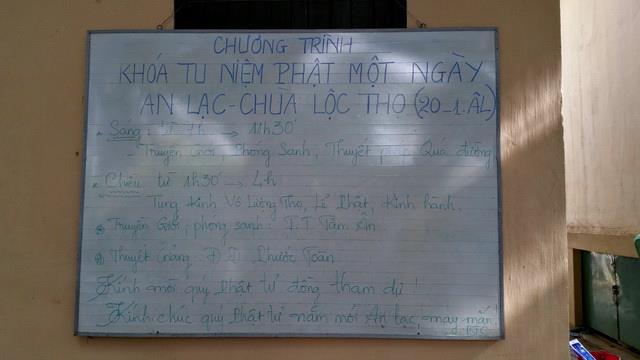 CHƯƠNG TRÌNH
KHÓA TU NIỆM PHẬT MỘT NGÀY
AN LẠC - CHÙA LỘC THỌ (20_1.ÂL)
Sáng: Từ 7h → 11h30'
- Truyền Giới, Phóng Sanh, Thuyết pháp Quá đường
Chiều từ 1h30' → 4h
Tụng Kinh Vô Lượng Thọ, Lễ Phật, Kinh hành.
Truyền Giới, phóng sanh: T.T Tâm
Thuyết Giảng: Đ.Đ. Phước Toàn
Kính mời quý Phật tử đồng tham dự!
Kính chúc quý Phật tử năm mới An lạc, may mắn!